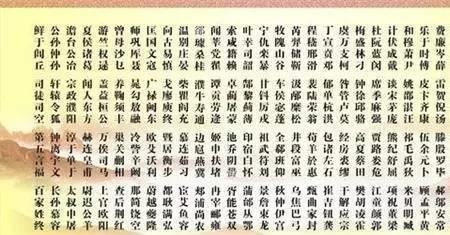 费廉岑薛 雷贺倪汤 滕殷罗毕 郝邬安常
乐于时傅 皮卞齐康 伍余元卜 顾孟平黄
和穆萧尹 姚邵湛汪 祁毛禹狄 米贝明臧
计伏成戴 谈宋茅庞 熊纪舒屈 项祝董梁
杜阮蓝闵 席季麻强 贾路娄危 江童颜郭
梅盛林刁 钟徐邱骆 高夏蔡田 樊胡凌霍
虞万支柯 昝管卢莫 经房裘缪 干解应宗
丁宣贲邓 郁单杭洪 包诸左石 崔吉钮龚
程嵇邢滑 裴陆荣翁 荀羊於惠 甄曲家封
芮羿储靳 汲邴糜松 井段富巫 乌焦巴弓
牧隗山谷 车侯宓蓬 全郗班仰 秋仲伊宫
宁仇栾暴 甘钭厉戎 祖武符刘 景詹束龙
叶幸司韶 郜黎蓟薄 印宿白怀 蒲邰从鄂
索咸籍赖 卓蔺屠蒙 池乔阴鬱 胥能苍双
闻莘党翟 谭贡劳逄 姬申扶堵 冉宰郦雍
璩桑桂 濮牛寿通 边扈燕冀 郏浦尚农
温别庄晏 柴瞿阎充 慕连茹习 宦艾鱼容
向古易慎 戈廖庾终 暨居衡步 都耿满弘
匡国文寇 广禄阙东 欧殳沃利 蔚越夔隆
师巩厍聂 晁勾敖融 冷訾辛阚 那简饶空
曾毋沙乜 养鞠须丰 巢关蒯相 查后荆红
游竺权逯 盖益桓公 万俟司马 上官欧阳
夏侯诸葛 闻人东方 赫连皇甫 尉迟公羊
澹台公冶 宗政濮阳 淳于单于 太叔申屠
公孙仲孙 轩辕令狐 钟离宇文 长孙慕容
鲜于闾丘 司徒司空 第五言福 百家姓终